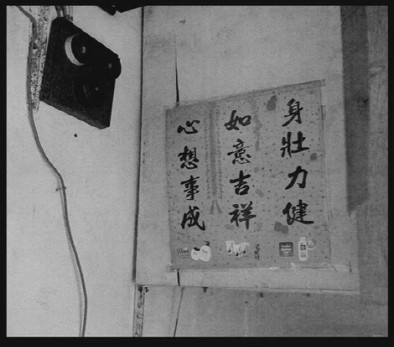 身壯力健
如意吉祥
心想事成